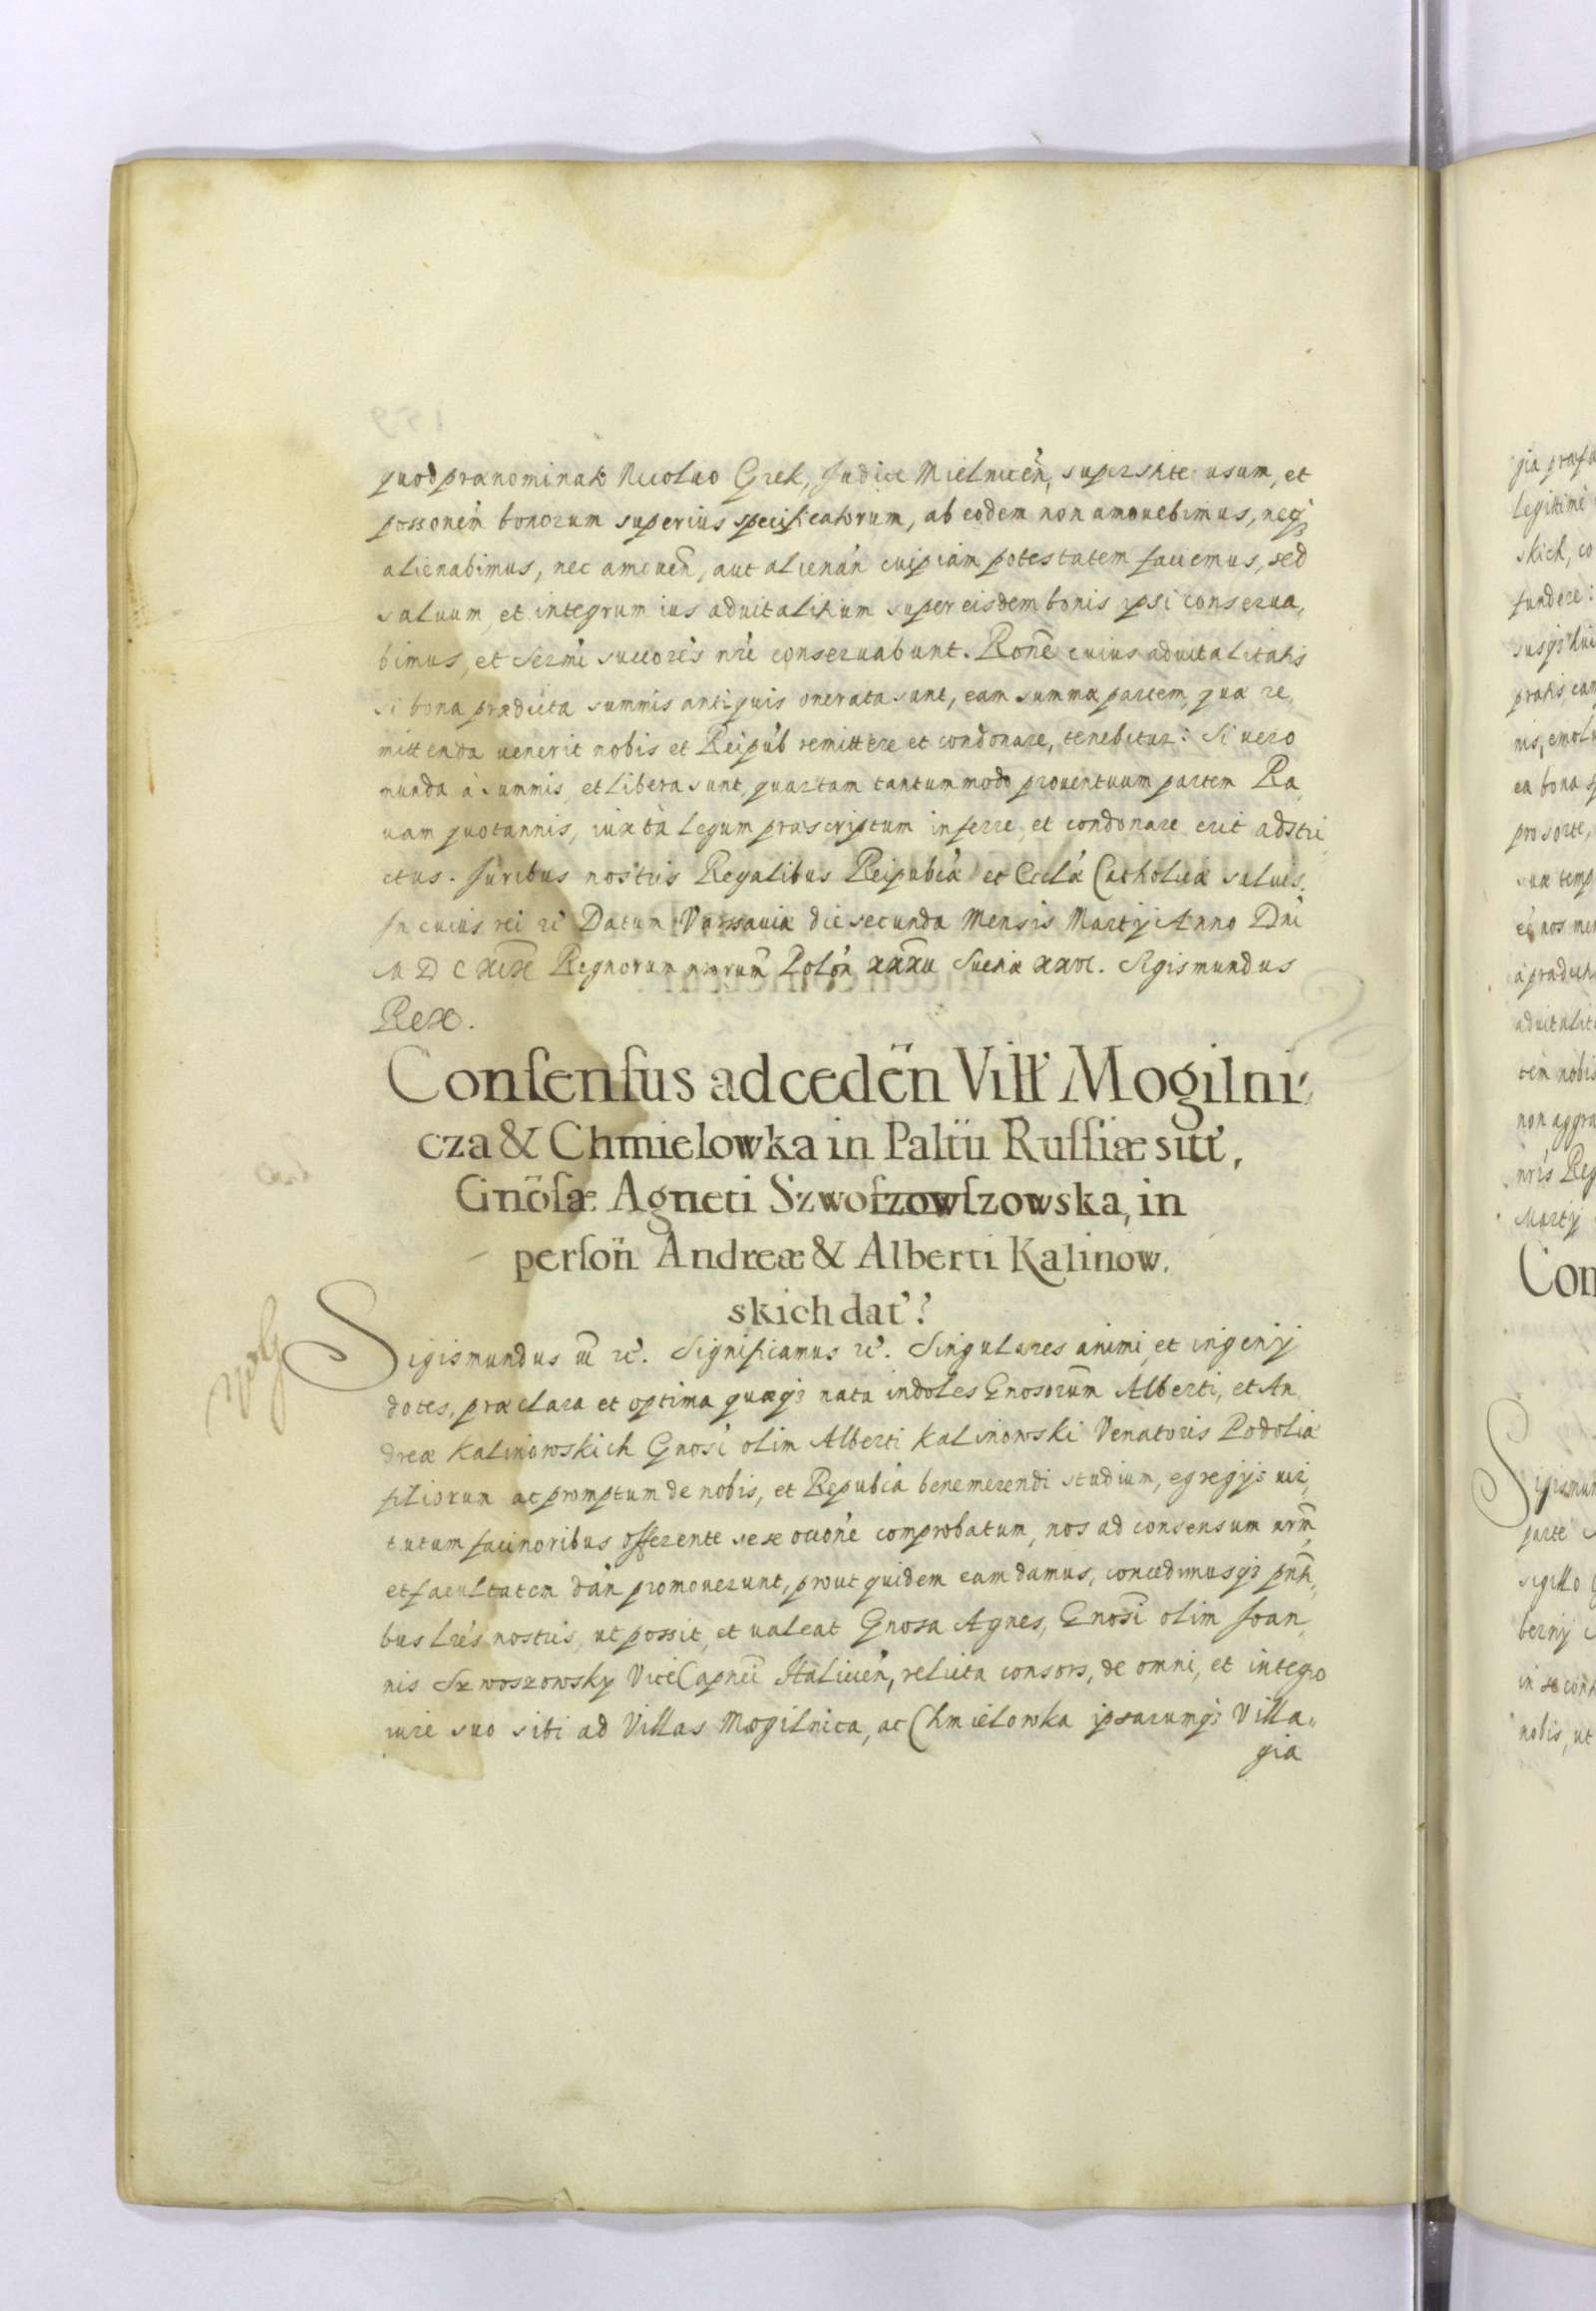 quod prænominato Nicolao Grek, Judice Mielnicen̄, superstite usum, et
possonem̄ bonorum superius specificatorum, ab eodem non amouebimus, neqꝫ
alienabimus, nec amouen̄, aut alienan̄ cuipiam potestatem faciemus, sed
saluum, et integrum ius aduitalitium super eisdem bonis ipsi conserua,
bimus, et Sermi succores nri conseruabunt. Rone cuius aduitalitatis
si bona prædicta summis antiquis onerata sunt, eam summæ partem, quæ re,
mittenda uenerit nobis et Reipub remittere et condonare, tenebitur: Si uero
munda à summis, et libera sunt, quartam tantummodo prouentuum partem Ra,
uam quotannis, iuxtà legum præscriptum inferre, et condonare erit adstri,
ctus. Juribus nostris Regalibus Reipubcæ et Ecclæ Catholicæ saluis.
In cuius rei rc̄ Datum Varsauiæ die secunda Mensis Martij Anno Dni
M D C XIX Regnorum nrorum Polon XXXII Sueciæ XXVI. Sigismundus
Rex.
Consensus ad ceden̄ Vill' Mogilni,
cza & Chmielowka in Paltu Russiæ sitt',
Gnosæ Agneti Szwoszowszowska, in
person̄ Andreæ & Alberti Kalinow,
skich dat'.
Sigismundus III rc̄. Significamus rc̄. Singulares animi, et ingenij
dotes, præclara et optima quæqꝫ nata indoles Gnosorum Alberti, et An,
dreæ Kalinowskich Gnosi olim Alberti Kalinowski Venatoris Podoliæ
filiorum ac promptum de nobis, et Repubca benemerendi studium, egregijs uir,
tutum facinoribus offerente sese occone comprobatum, nos ad consensum nrm,
et facultatem dan̄ promouerunt, prout quidem eam damus, concedimusqꝫ pnti,
bus lres nostris, ut possit, et ualeat Gnosa Agnes, Gnosi olim Joan,
nis Szwoszowsky ViceCapnei Halicien̄, relicta consors, de omni, et integro
iure suo sibi ad Villas Mogilnica, ac Chmielowka ipsarumqꝫ Villa,,
gia